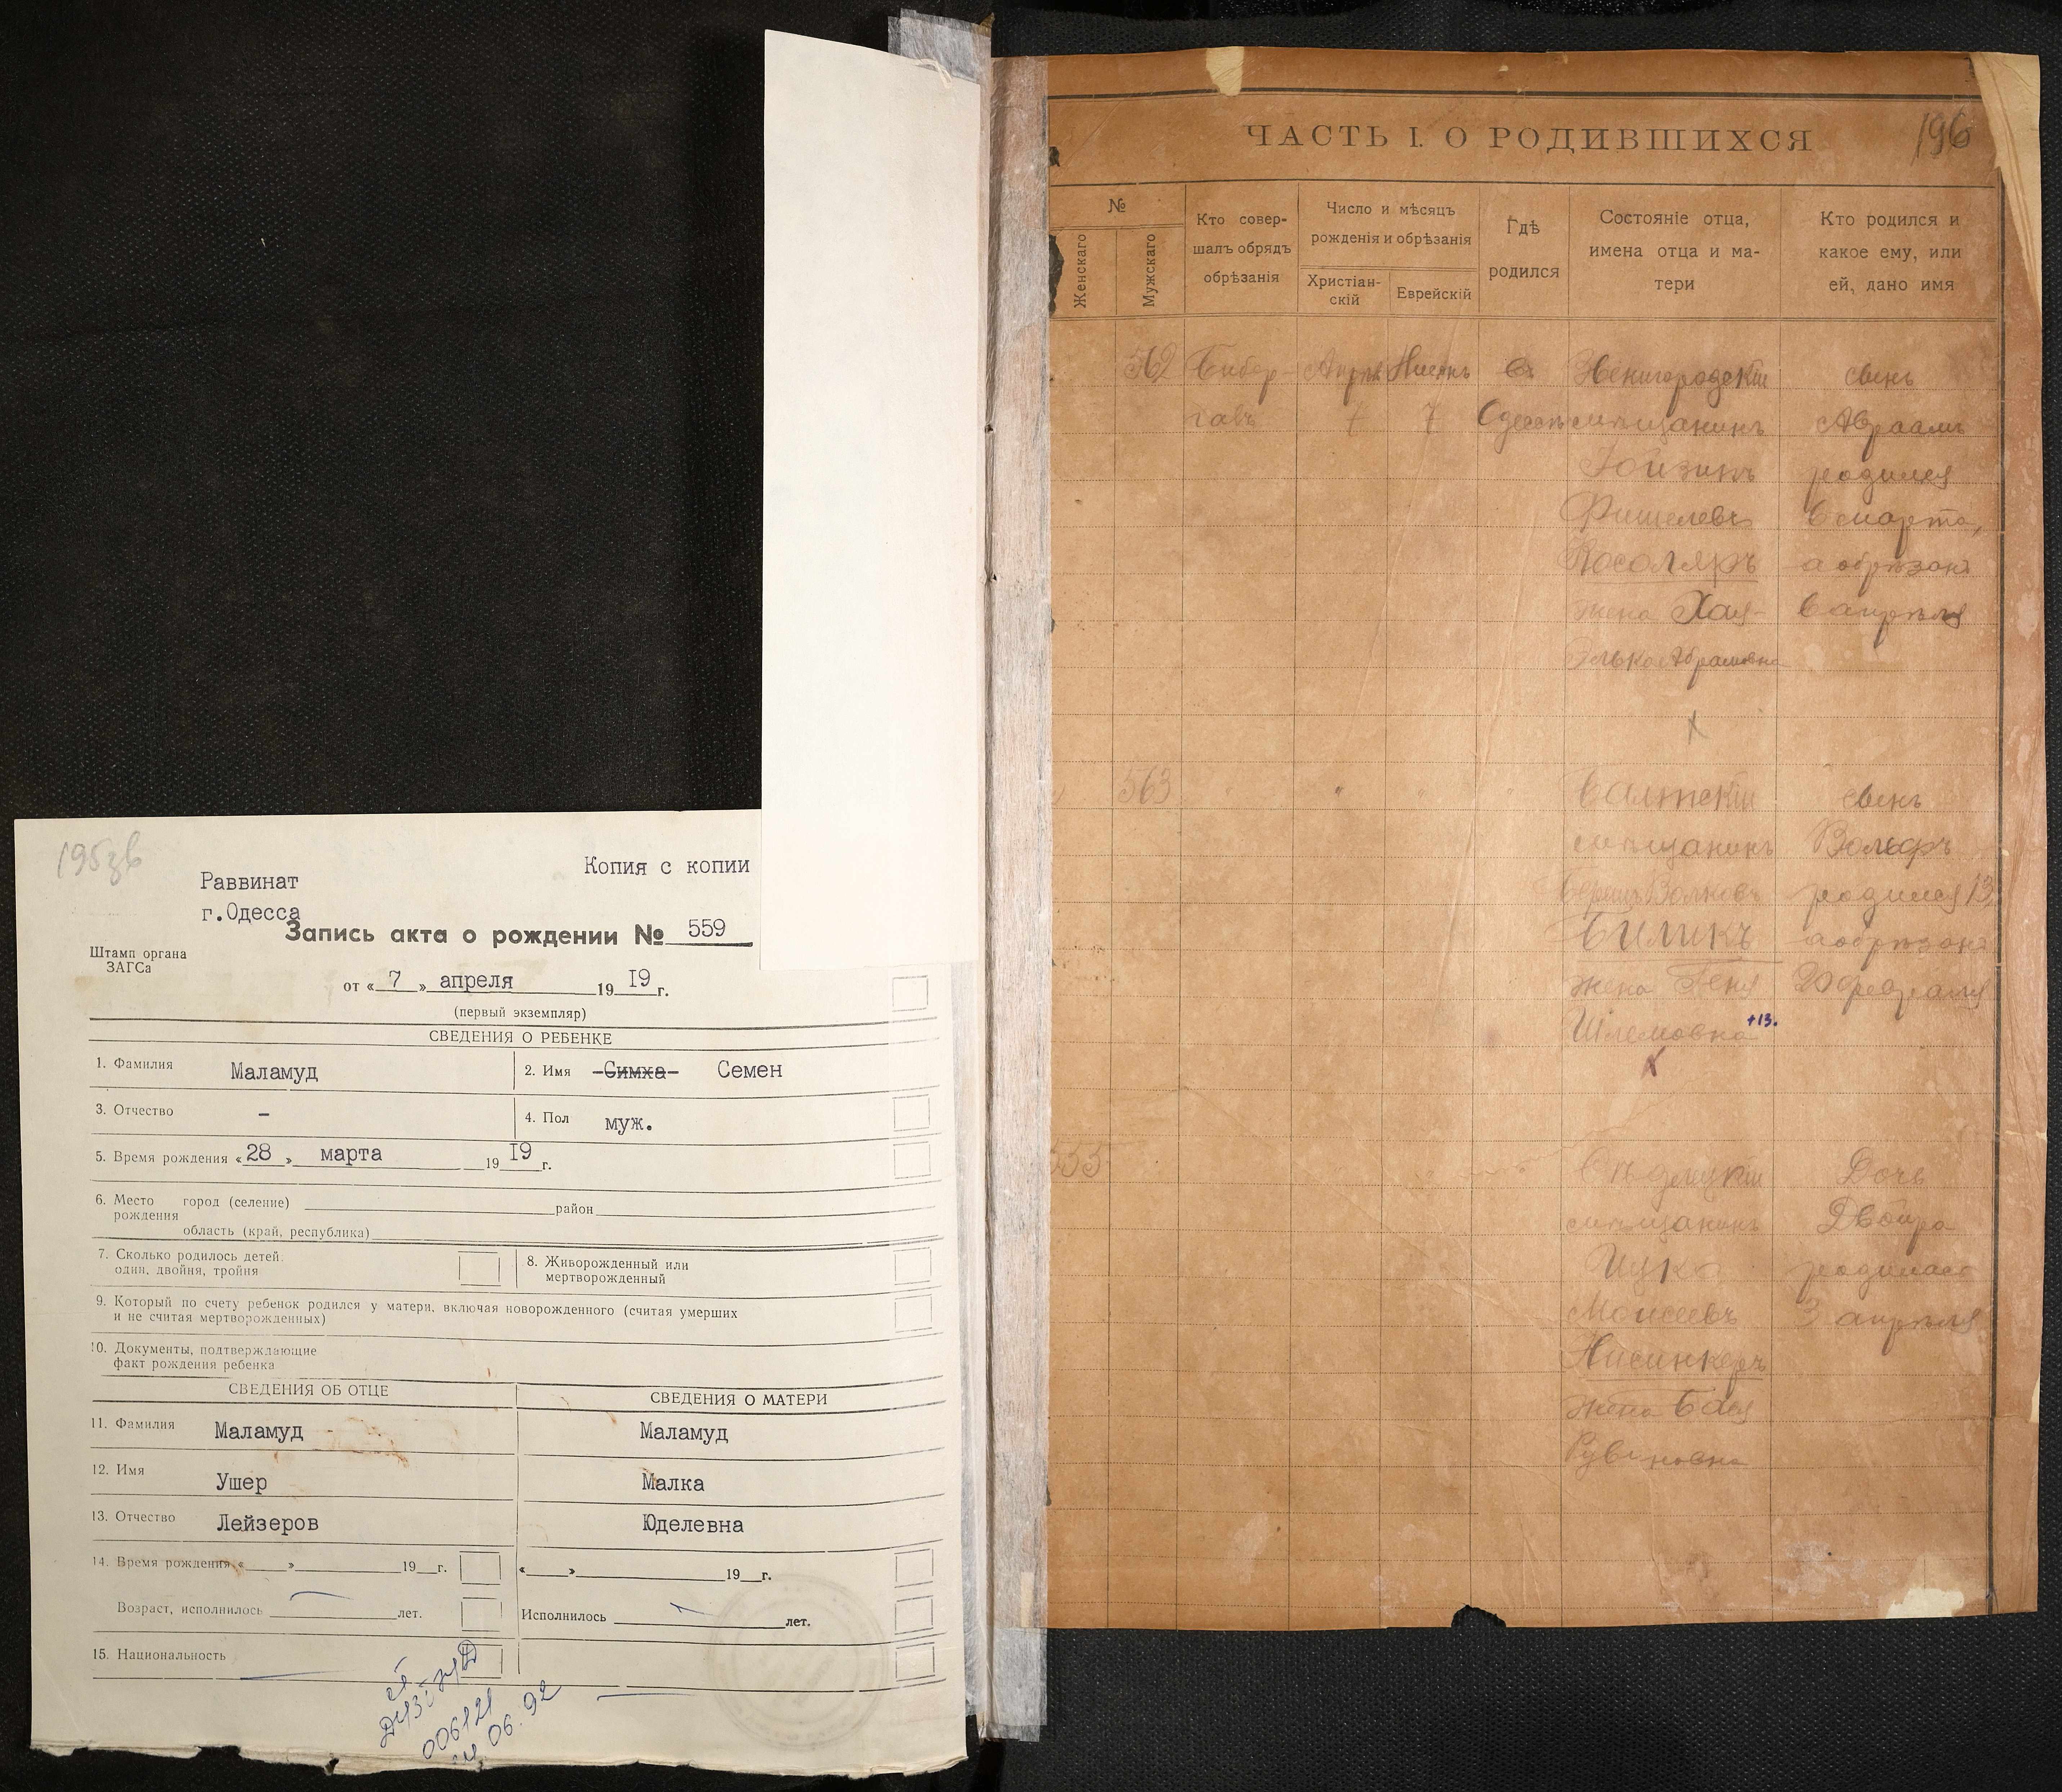 195 зв
Копия с копии
Раввинат
г.Одесса
Запись акта о рождении № 559
Штамп органа
ЗАГСа
от « 7 » апреля 19 I9 г.
(первый экземпляр)
СВЕДЕНИЯ О РЕБЕНКЕ
1. Фамилия Маламуд 2. Имя Симха Семен
3. Отчество – 4. Пол муж.
5. Время рождения « 28 » марта 19 I9 г.
6. Место город (селение) район
рождения
область (край, республика)
7. Сколько родилось детей:
один, двойня, тройня
8. Живорожденный или
мертворожденный
9. Который по счету ребенок родился у матери, включая новорожденного (считая умерших
и не считая мертворожденных)
10. Документы, подтверждающие
факт рождения ребенка
СВЕДЕНИЯ ОБ ОТЦЕ СВЕДЕНИЯ О МАТЕРИ
11. Фамилия Маламуд Маламуд
12. Имя Ушер Малка
13. Отчество Лейзеров Юделевна
14. Время рождения « » 19 г. « » 19 г.
Возраст, исполнилось лет. Исполнилось лет.
15. Национальность
006121
06.92
ЧАСТЬ I. О РОДИВШИХСЯ
196
№
Женскаго
Мужскаго
Кто совер-
шалъ обрядъ
обрѣзанія
Число и мѣсяцъ
рожденія и обрѣзанія
Христіан-
скій
Еврейскій
Гдѣ
родился
Состояніе отца,
имена отца и ма-
тери
Кто родился и
какое ему, или
ей, дано имя
562 Апрѣль Нисонъ въ Звенигородскій сынъ
7 7 Одессѣ мѣщанинъ Авраамъ
родился
Фишелевъ 6 марта,
а обрѣзанъ
жена Хая- 6 апрѣля
Элька Абрамовна
563 Балтскій сынъ
мѣщанинъ Вольфъ
Берко Волковъ родился 13
Биликъ а обрѣзанъ
жена Геня 20 февраля
Шлемовна +13.
555 мѣщанинъ Дочь
Двойра
Ицко родилась
Моисеевъ 3 апрѣля
Нисинкеръ
жена Бася
Рувиновна